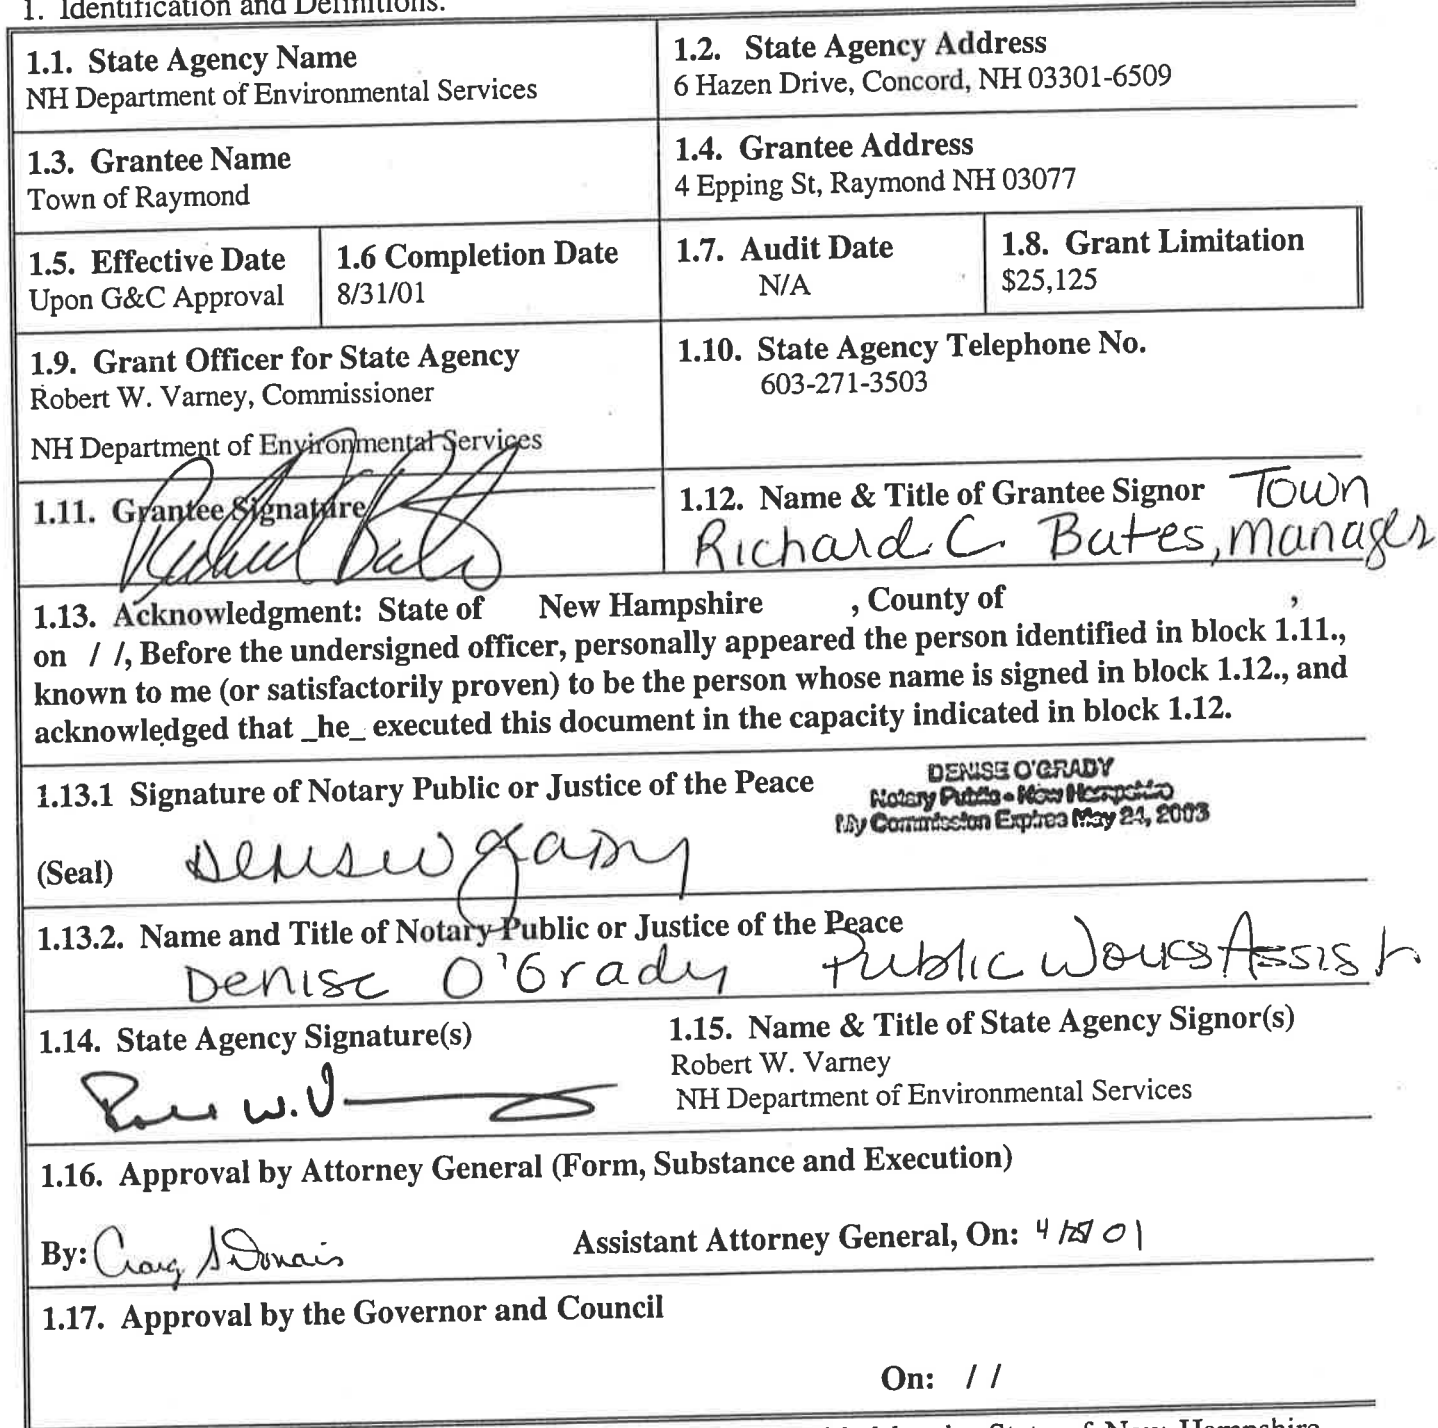 1. Identification and Definitions.
1.1. State Agency Name
NH Department of Environmental Services
1.2. State Agency Address
6 Hazen Drive, Concord, NH 03301-6509
1.3. Grantee Name
Town of Raymond
1.4. Grantee Address
4 Epping St, Raymond NH 03077
1.5. Effective Date
Upon G&C Approval
1.6 Completion Date
8/31/01
1.7. Audit Date
N/A
1.8. Grant Limitation
$25,125
1.9. Grant Officer for State Agency
Robert W. Varney, Commissioner
NH Department of Environmental Services
1.10. State Agency Telephone No.
603-271-3503
1.11. Grantee Signature
Richard Bates
1.12. Name & Title of Grantee Signor Town
Richard C. Bates, Manager
1.13. Acknowledgment: State of New Hampshire , County of ,
on / /, Before the undersigned officer, personally appeared the person identified in block 1.11.,
known to me (or satisfactorily proven) to be the person whose name is signed in block 1.12., and
acknowledged that _he_ executed this document in the capacity indicated in block 1.12.
1.13.1 Signature of Notary Public or Justice of the Peace
DENISE O'GRADY
Notary Public - New Hampshire
My Commission Expires May 24, 2003
(Seal) Denise O'Grady
1.13.2. Name and Title of Notary Public or Justice of the Peace
Denise O'Grady Public Works Assist.
1.14. State Agency Signature(s)
1.15. Name & Title of State Agency Signor(s)
Robert W. Varney
NH Department of Environmental Services
W. V
1.16. Approval by Attorney General (Form, Substance and Execution)
By: Craig S Donais Assistant Attorney General, On: 4/ 01
1.17. Approval by the Governor and Council
On: / /
State of New Hampshire